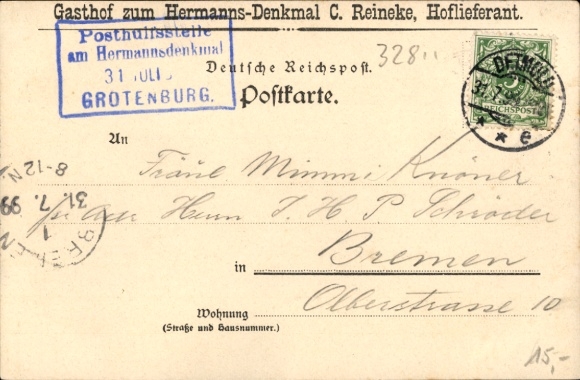 Gasthof zum Hermanns-Denkmal C. Reineke, Hoflieferant.
Posthülfsstelle
am Hermannsdenkmal
31 JULI
GROTENBURG.
328
Deutsche Reichspost.
Postkarte.
DETMOLD
31.7.
* * e
5
REICHSPOST
An
Fräul. Mimmi Knöner
Herrn J. H. P. Schröder
in Bremen
Olberstrasse 10
Wohnung
(Straße und Hausnummer.)
BREMEN
1
31. 7. 99
8-12 N
15,-